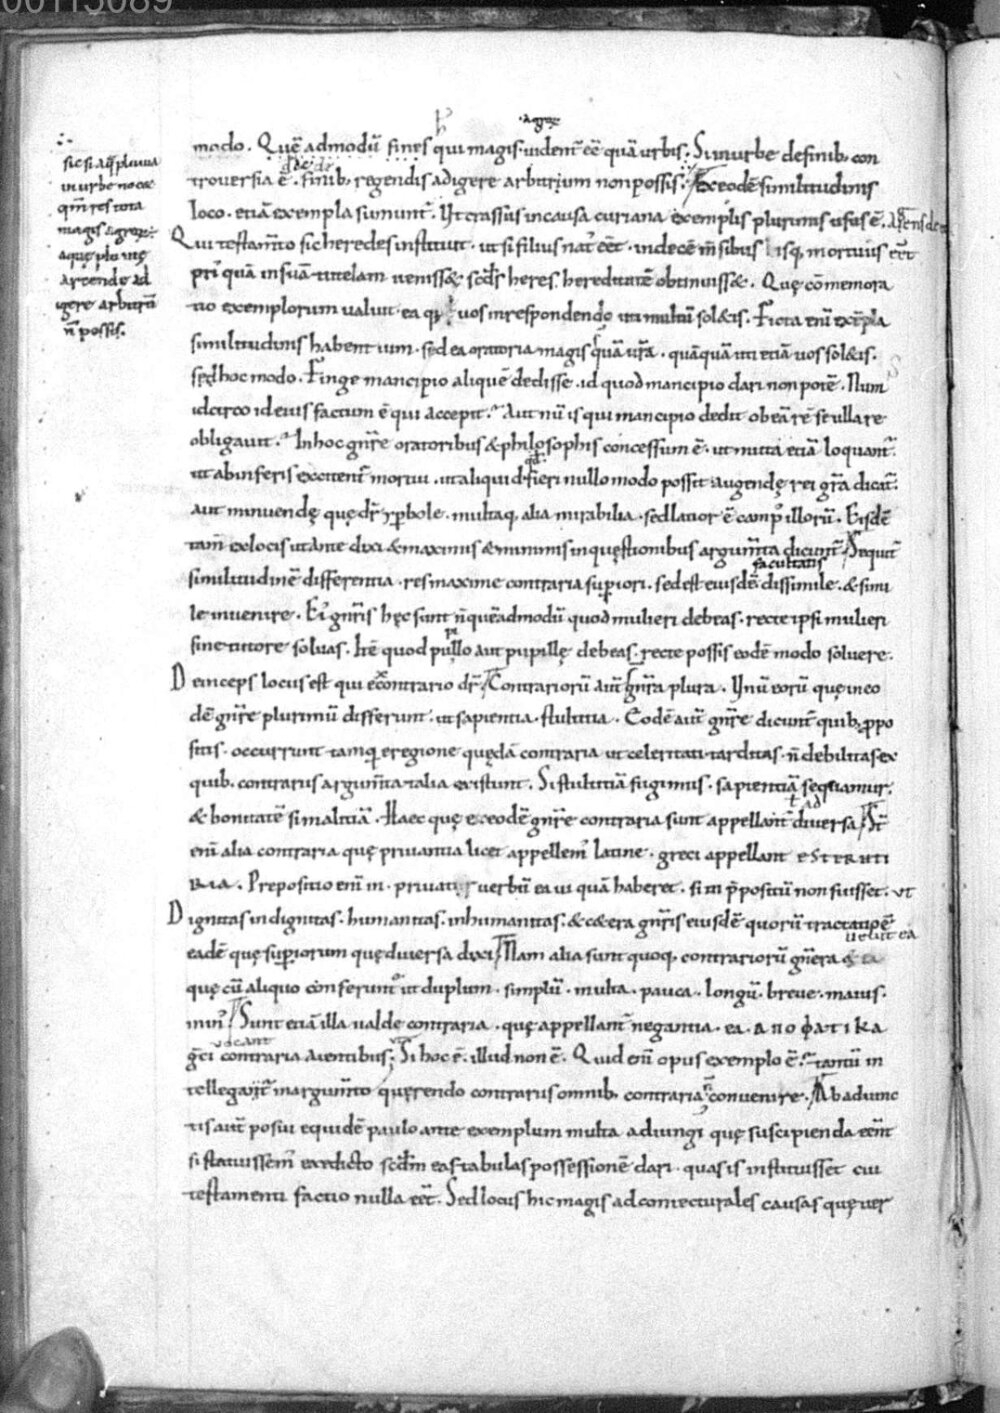 00115089
·agrę
modo. Quē admodū fines qui magis uident̄ eē quā urbis; Si in urbe de finib; con
trouersia ē. finib; regendis adigere arbitrium non possis; Ex eodē similitudinis
loco. etiā exempla sumunt̄. Ut crassus in causa curiana exemplis plurimis usus ē. agens de
Qui testam̄to sic heredes instituit. ut si filius nat' eēt. in decē m̄sibus isq; mortuus eēt
pri' quā in suā tutelam uenisset scd's heres. hereditatē obtinuisset. Quę cōmemora
tio exemplorum ualuit. ea q; uos in respondendo uti multū soletis. Ficta enī exēpla
similitudinis habent uim. sed ea oratoria magis quā ur̄a. quāquā uti etiā uos soletis.
sed hoc modo. Finge mancipio aliquē dedisse. id quod mancipio dari non potē. Num
idcirco id eius factum ē qui accepit? Aut nū is qui mancipio dedit ob eā rē se ulla re
obligauit? In hoc gn̄re oratoribus & philosophis concessum ē. ut muta etiā loquant̄.
ut ab inferis excitent̄ mortui. ut aliquid fieri nullo modo possit augendę rei gr̄a dicat̄.
aut minuendę quę dr̄ yperbole. multaq; alia mirabilia. sed latior ē camp' illorū. Eisdē
tam̄ ex locis ut ante dixi & maximis & minimis in quęstionibus argum̄ta dicunt̄ Sequit̄
facultatis
similitudinē differentia. res maxime contraria superiori. sed est eiusdē dissimile. & simi
le inuenire. Ei' gn̄ris hęc sunt n̄ quēadmodū quod mulieri debeas. recte ipsi mulieri
sine tutore soluas. Itē quod pupillo aut pupillę debeas. recte possis eodē modo soluere.
Deinceps locus est qui e contrario dr̄. Contrariorū aut̄ gn̄ra plura. Unū eorū quę in eo
dē gn̄re plurimū differunt. ut sapientia. stultitia. Eodē aut̄ gn̄re dicunt̄ quib; ppo
sitis. occurrunt tamq; e regione quędā contraria ut celeritati tarditas. n̄ debilitas ex
quib. contrariis argum̄ta talia existunt. Si stultitiā fugimus. sapientiā sequamur.
ł ad
& bonitatē si malitiā. Haec quę ex eodē gn̄re contraria sunt appellant̄ diuersa St̄
enī alia contraria quę priuantia licet appellem' latine. greci appellant esteruti
ria. Prepositio enī in. priuat uerbū ea ui quā haberet. si in p̄positū non fuisset. ut
Dignitas indignitas. humanitas. inhumanitas. & cetera gn̄ris eiusdē quorū tractatio ē
uelut ea
eadē quę superiorum quę diuersa dixi Nam alia sunt quoq; contrariorū gn̄era
quę cū aliquo conferunt' ut duplum. simplū. multa. pauca. longū. breue. maius.
min'. Sunt etiā illa ualde contraria. quę appellant̄ negantia. ea. αποφατικα
uocant
gr̄ci contraria aientibus; Si hoc ē. illud non ē. Quid enī opus exemplo ē. tantū in
tellegat̄ in argum̄to querendo contrariis omnib; contraria n̄ conuenire. Ab adiunc
tis aut̄ posui equidē paulo ante exemplum multa adiungi quę suscipienda eēnt
si statuissem' ex edicto scd̄m eas tabulas possessionē dari. quas is instituisset cui
testamenti factio nulla eēt. Sed locus hic magis ad coniecturales causas quę uer
sic si aq pluuia
in urbe nocet
qm̄ res tota
magis agrorę
aquę pluuię
arcendę ad
igere arbitrū
n̄ possis.